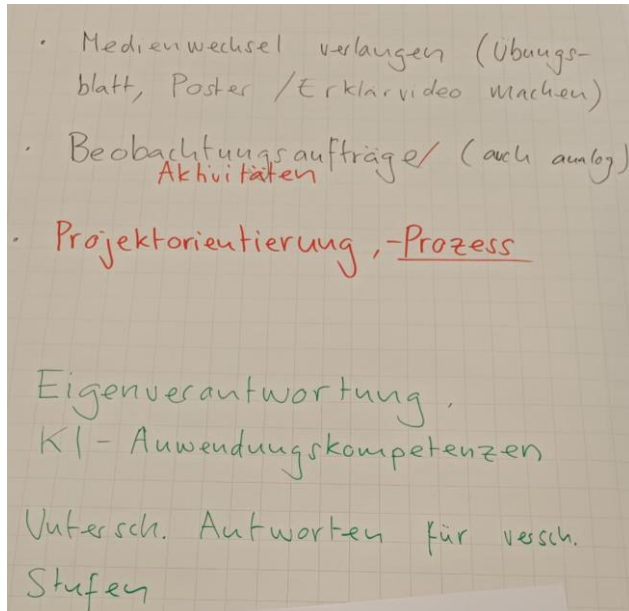 · Medienwechsel verlangen (Übungs-
blatt, Poster / Erklärvideo machen)
· Beobachtungsaufträge/ (auch analog)
Aktivitäten
· Projektorientierung, -Prozess
Eigenverantwortung,
KI - Anwendungskompetenzen
Untersch. Antworten für versch.
Stufen